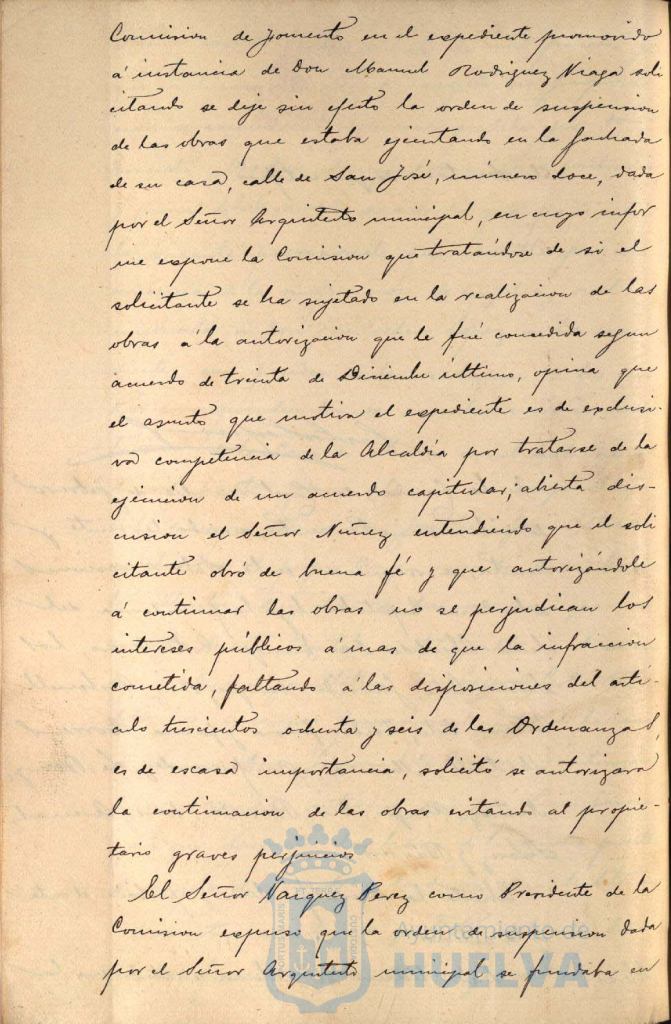 Comision de Fomento en el expediente promovido
á instancia de Don Manuel Rodriguez Niaga soli
citando se deje sin efecto la orden de suspension
de las obras que estaba ejecutando en la fachada
de su casa, calle de San José, número doce, dada
por el Señor Arquitecto municipal, en cuyo infor
me expone la Comision que tratándose de si el
solicitante se ha sujetado en la realizacion de las
obras á la autorizacion que le fué concedida segun
acuerdo de treinta de Diciembre último, opina que
el asunto que motiva el expediente es de exclusi-
va competencia de la Alcaldía por tratarse de la
ejecucion de un acuerdo capitular; abierta dis-
cusion el Señor Nuñez entendiendo que el soli
citante obró de buena fé y que autorizándole
á continuar las obras no se perjudican los
intereses públicos á mas de que la infraccion
cometida, faltando á las disposiciones del artí-
culo trescientos ochenta y seis de las Ordenanzas,
es de escasa importancia, solicitó se autorizara
la continuacion de las obras evitando al propie-
tario graves perjuicios
El Señor Vazquez Perez como Presidente de la
Comision expuso que la orden de suspension dada
por el Señor Arquitecto municipal se fundaba en
Ayuntamiento de
HUELVA